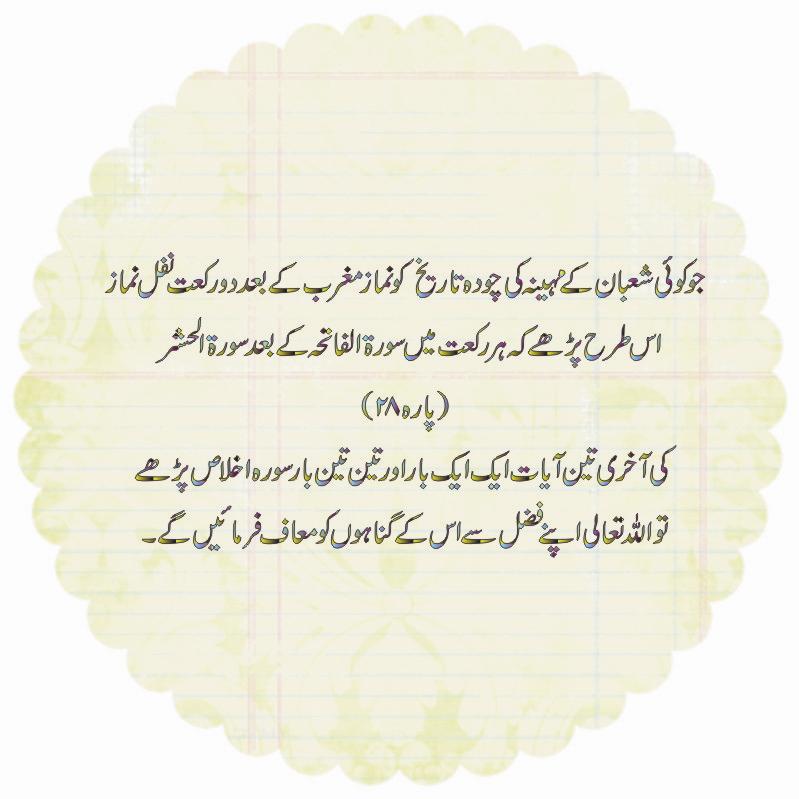 جو کوئی شعبان کے مہینہ کی چودہ تاریخ کو نماز مغرب کے بعد دو رکعت نفل نماز
اس طرح پڑھے کہ ہر رکعت میں سورۃ الفاتحہ کے بعد سورۃ الحشر
(پارہ ۲۸)
کی آخری تین آیات ایک ایک بار اور تین تین بار سورہ اخلاص پڑھے
تو اللہ تعالی اپنے فضل سے اس کے گناہوں کو معاف فرمائیں گے۔